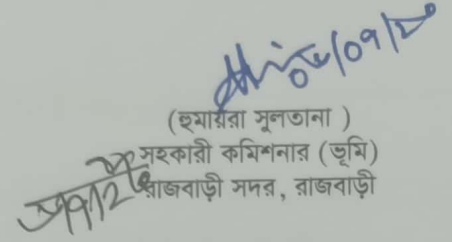 (হুমায়রা সুলতানা )
সহকারী কমিশনার (ভূমি)
রাজবাড়ী সদর, রাজবাড়ী